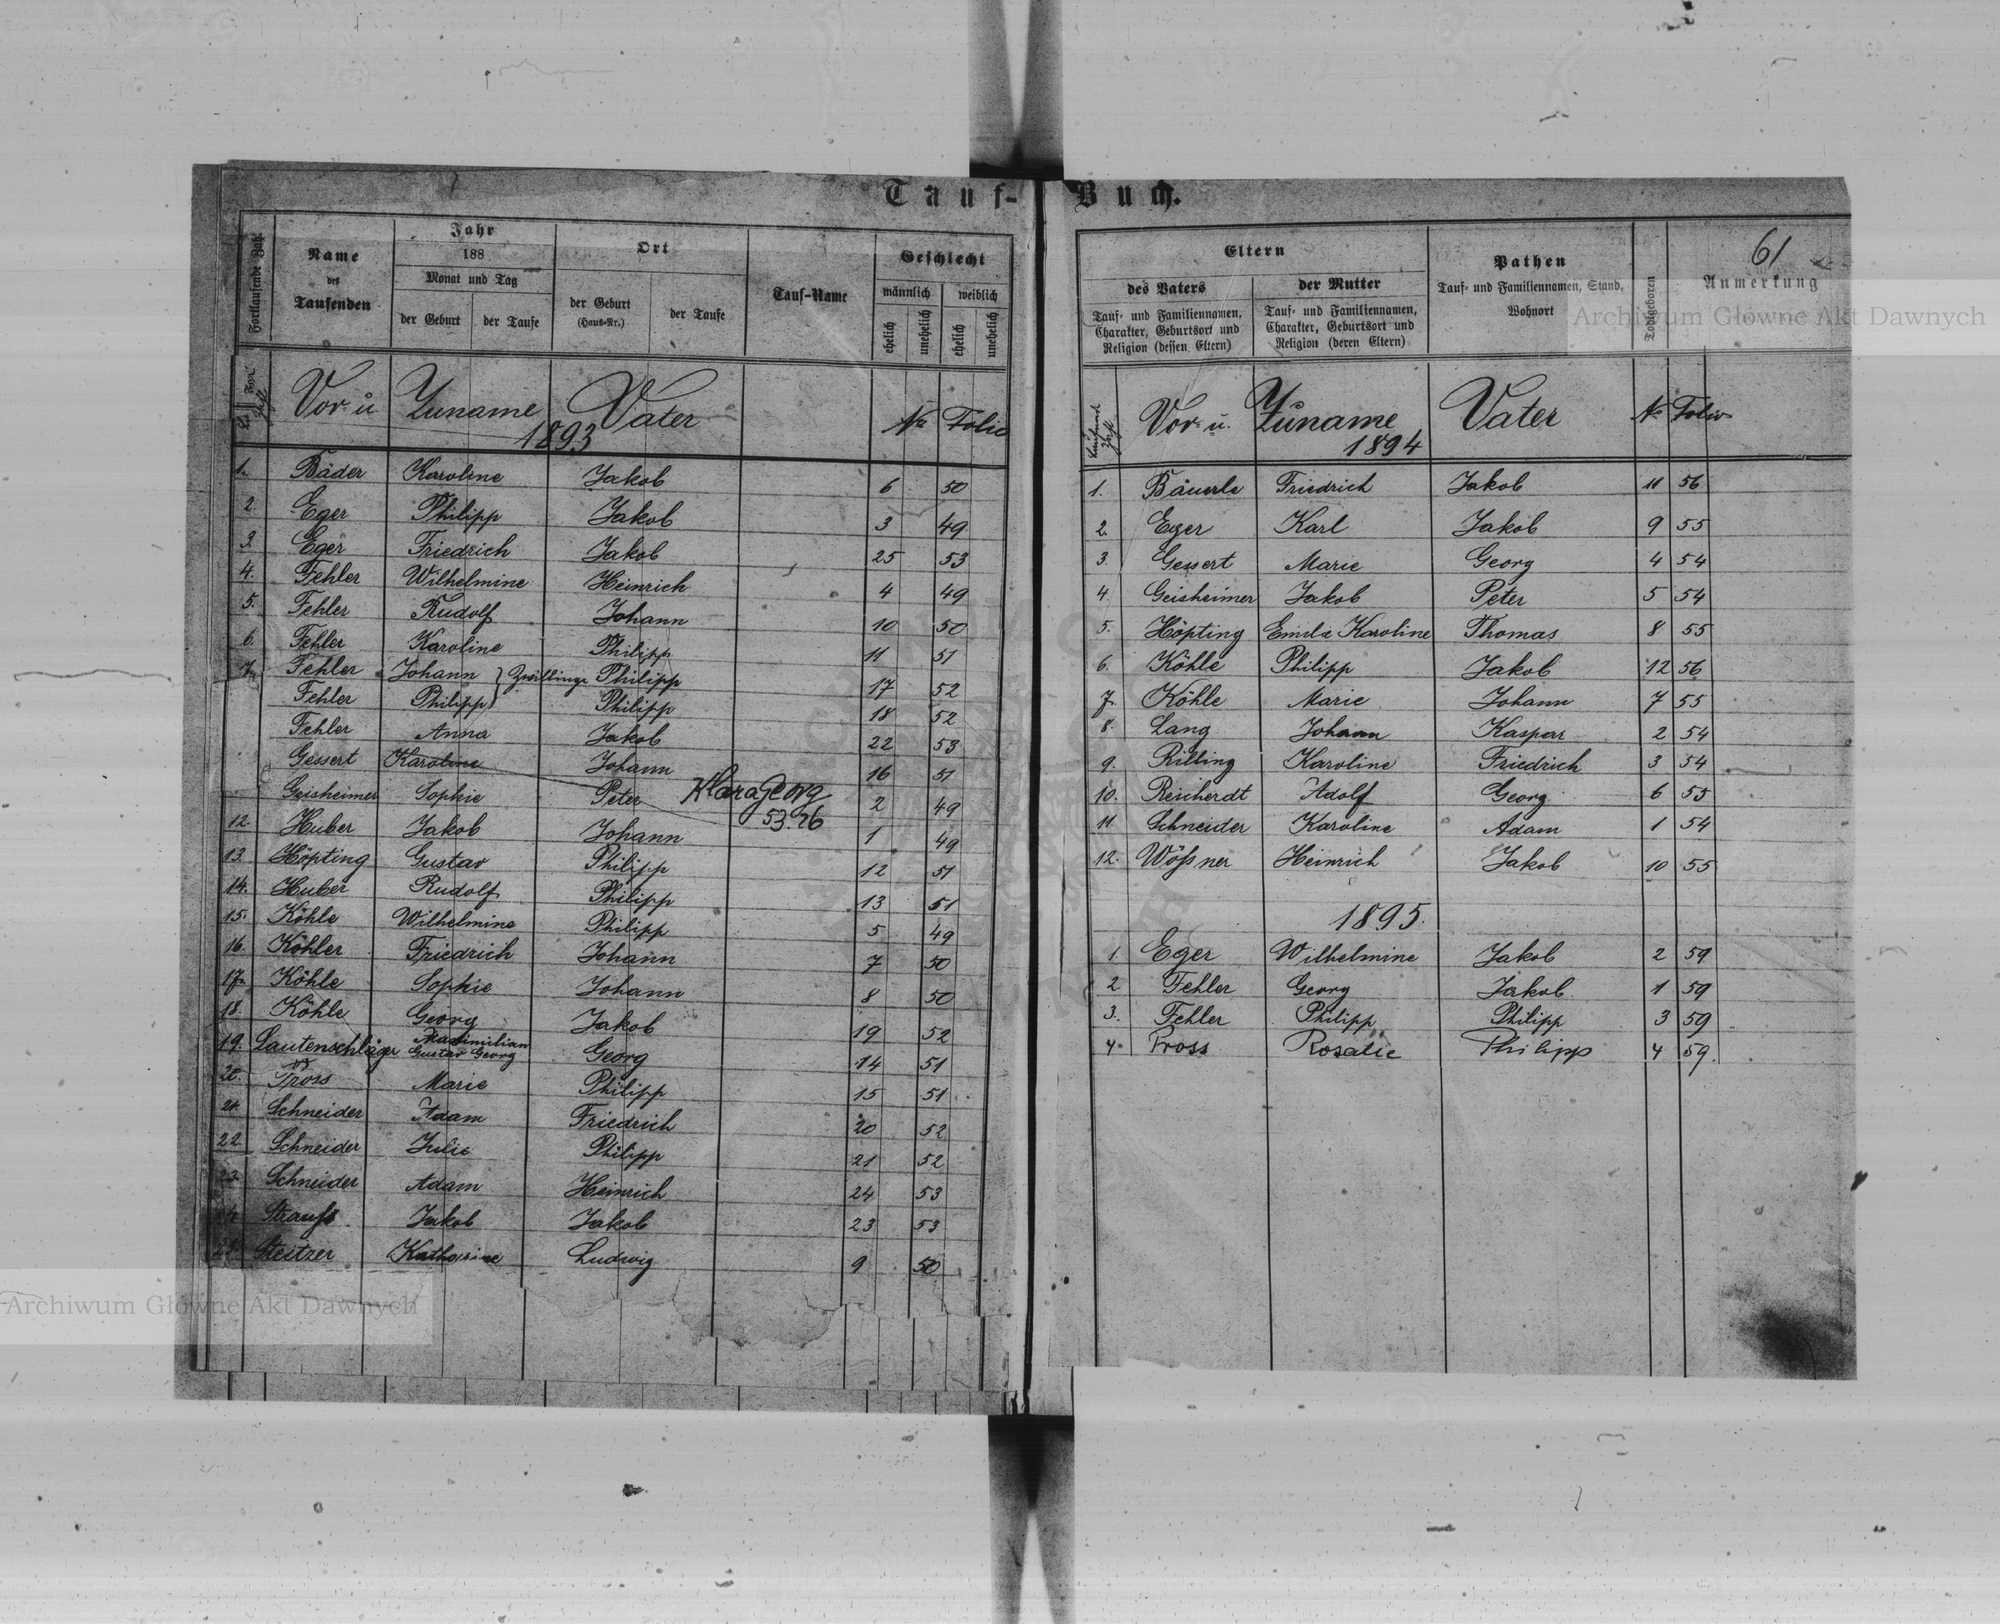 Tauf-Buch.
61
Fortlaufende Zahl
Name
des
Taufenden
Jahr
188
Monat und Tag
der Geburt
der Taufe
Ort
der Geburt
(Haus-Nr.)
der Taufe
Tauf-Name
Geschlecht
männlich
weiblich
ehelich
unehelich
ehelich
unehelich
Vor- u. Zuname Vater № Folio
1893
1. Bäder Karoline Jakob 6 50
2. Eger Philipp Jakob 3 49
3. Eger Friedrich Jakob 25 53
4. Fehler Wilhelmine Heinrich 4 49
5. Fehler Rudolf Johann 10 50
6. Fehler Karoline Philipp 11 51
7. Fehler Johann } Zwillinge Philipp 17 52
Fehler Philipp } Philipp 18 52
Fehler Anna Jakob 22 53
Gessert Karoline Johann 16 51
Klara Georg
53. 26
Geisheimer Sophie Peter 2 49
12. Huber Jakob Johann 1 49
13. Höpting Gustav Philipp 12 51
14. Huber Rudolf Philipp 13 51
15. Köhle Wilhelmine Philipp 5 49
16. Köhler Friedrich Johann 7 50
17. Köhle Sophie Johann 8 50
18. Köhle Georg Jakob 19 52
19. Lautenschläger Maximilian Gustav Georg Georg 14 51
20. Pross Marie Philipp 15 51
21. Schneider Adam Friedrich 20 52
22. Schneider Julie Philipp 21 52
23. Schneider Adam Heinrich 24 53
24. Strauß Jakob Jakob 23 53
25. Steitzer Katharine Ludwig 9 50
Eltern
des Vaters
Tauf- und Familiennamen,
Charakter, Geburtsort und
Religion (dessen Eltern)
der Mutter
Tauf- und Familiennamen,
Charakter, Geburtsort und
Religion (deren Eltern)
Pathen
Tauf- und Familiennamen, Stand,
Wohnort
Todtgeboren
Anmerkung
Laufende Zahl
Vor- u. Zuname Vater № Folio
1894
1. Bäuerle Friedrich Jakob 11 56
2. Eger Karl Jakob 9 55
3. Gessert Marie Georg 4 54
4. Geisheimer Jakob Peter 5 54
5. Höpting Emilie Karoline Thomas 8 55
6. Köhle Philipp Jakob 12 56
7. Köhle Marie Johann 7 55
8. Lang Johann Kaspar 2 54
9. Rilling Karoline Friedrich 3 54
10. Reicherdt Adolf Georg 6 55
11 Schneider Karoline Adam 1 54
12. Wößner Heinrich Jakob 10 55
1895.
1. Eger Wilhelmine Jakob 2 59
2 Fehler Georg Jakob 1 59
3. Fehler Philipp Philipp 3 59
4. Pross Rosalie Philipp 4 59.
Archiwum Główne Akt Dawnych
Archiwum Główne Akt Dawnych